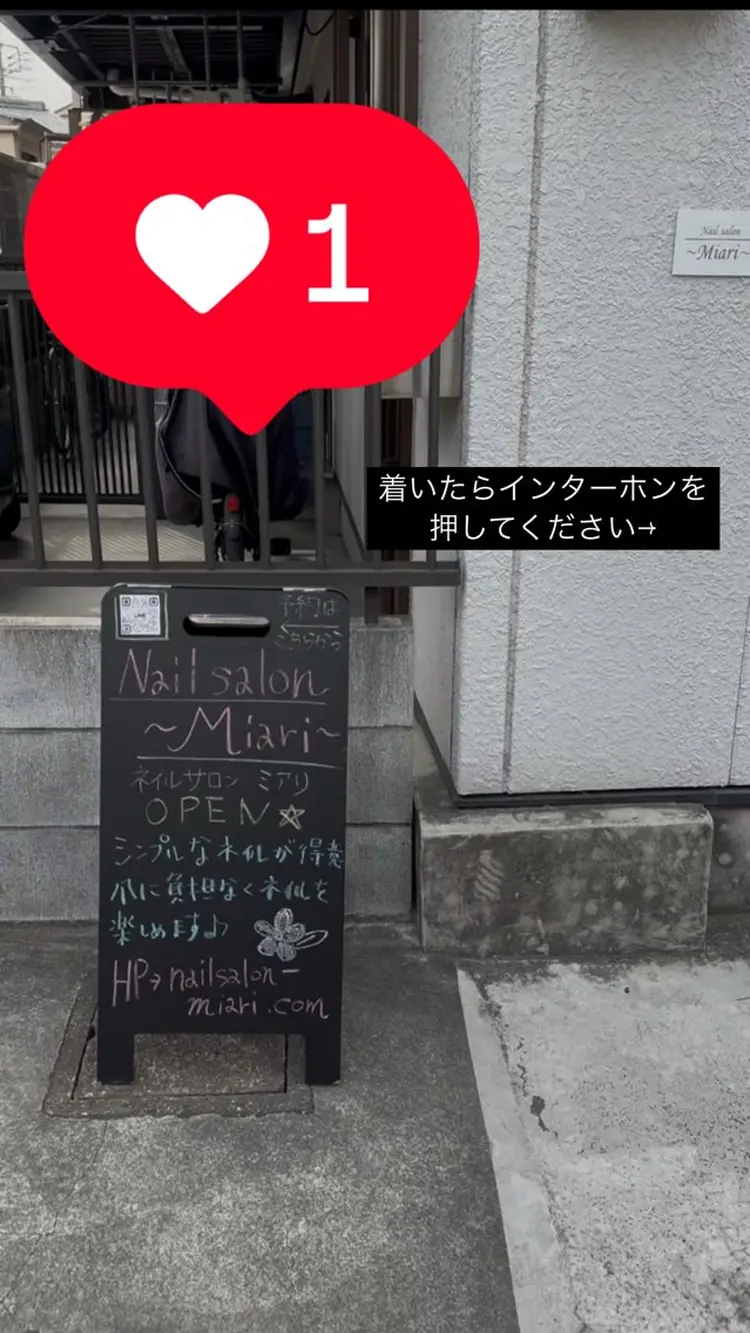 1
Nail salon
~Miari~
着いたらインターホンを
押してください→
LINE
予約は
こちらから
Nail salon
~Miari~
ネイルサロン ミアリ
OPEN☆
シンプルなネイルが得意
爪に負担なくネイルを
楽しめます♪
HP→nailsalon-
miari.com